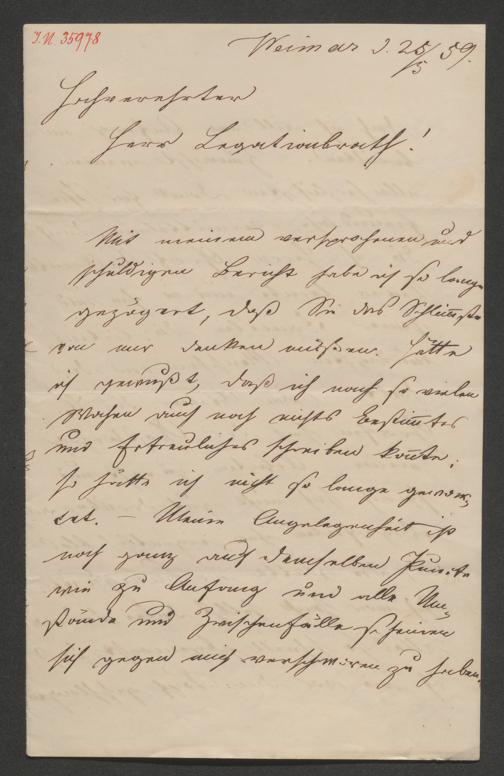 I.N. 35978
Weimar d. 25/5 59.
Hochverehrter
Herr Legationsrath!
Mit meinem versprochenen und
schuldigen Bericht habe ich so lange
gezögert, daß Sie das Schlimmste
von mir denken müssen. Hätte
ich gewußt, daß ich nach so vielen
Wochen auch noch nichts Bestimtes
und Erfreuliches schreiben konte;
so hätte ich nicht so lange gewar-
tet. – Meine Angelegenheit ist
noch ganz auf demselben Puncte
wie zu Anfang und alle Um-
stände und Zwischenfälle scheinen
sich gegen mich verschworen zu haben.